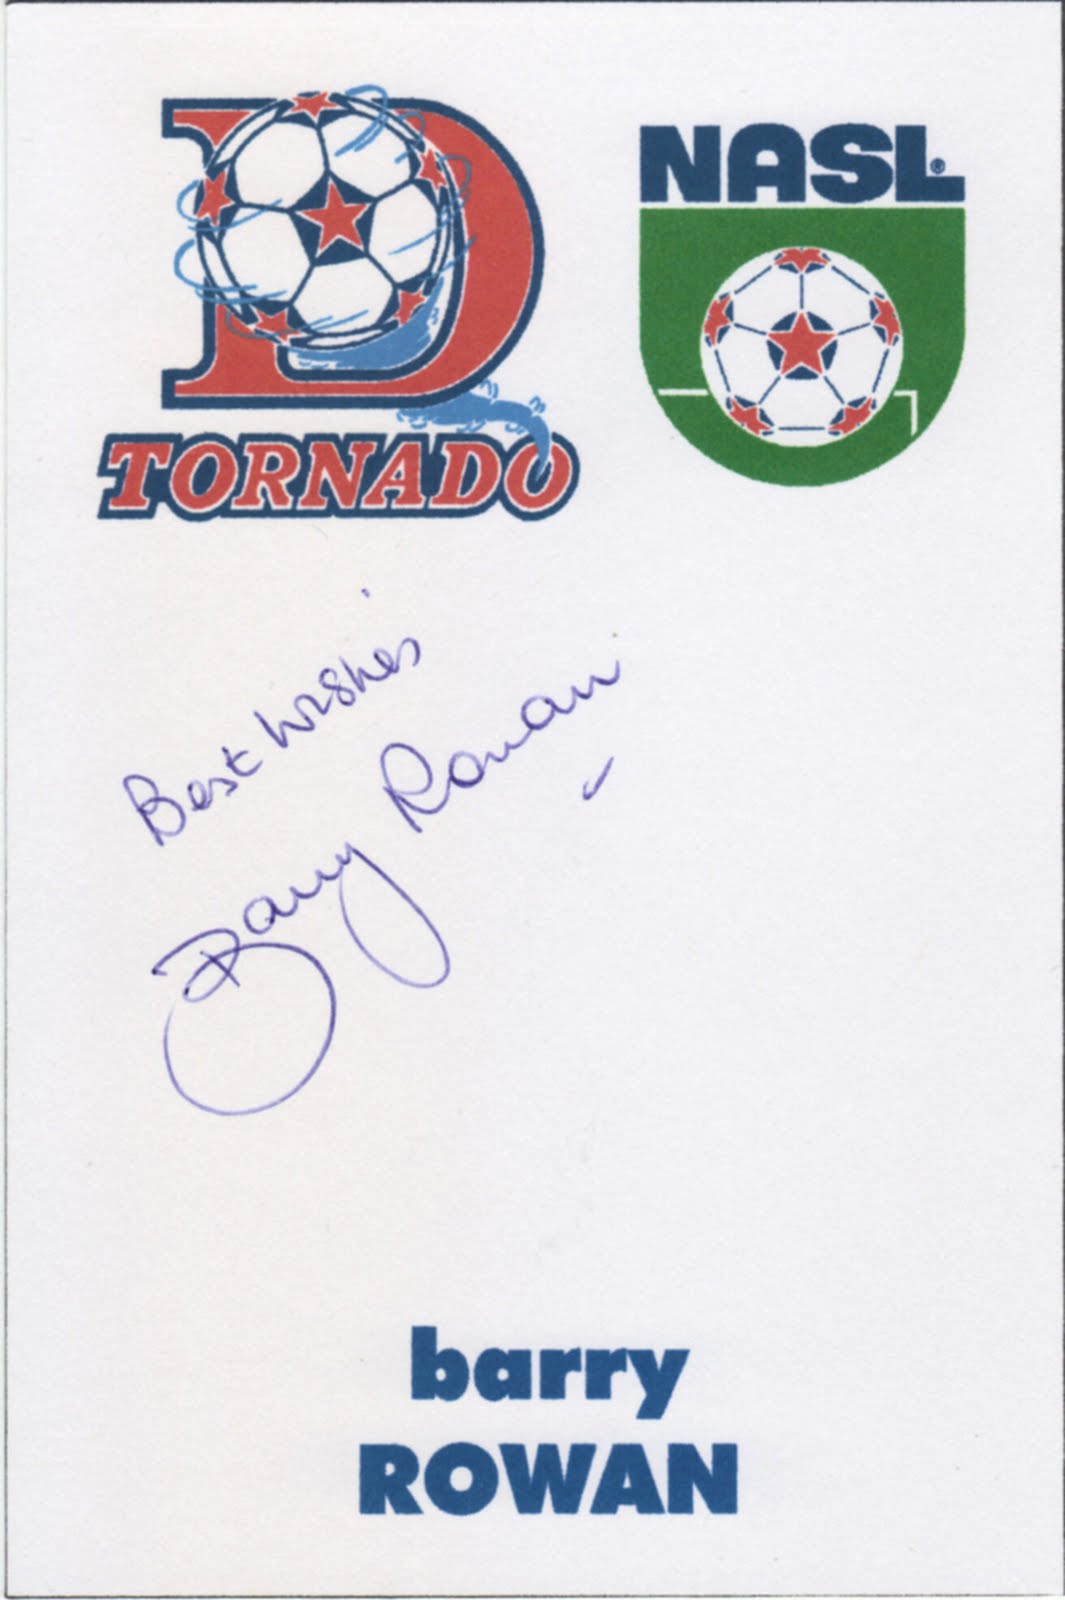 D
TORNADO
NASL®
Best wishes
Barry Rowan
barry
ROWAN